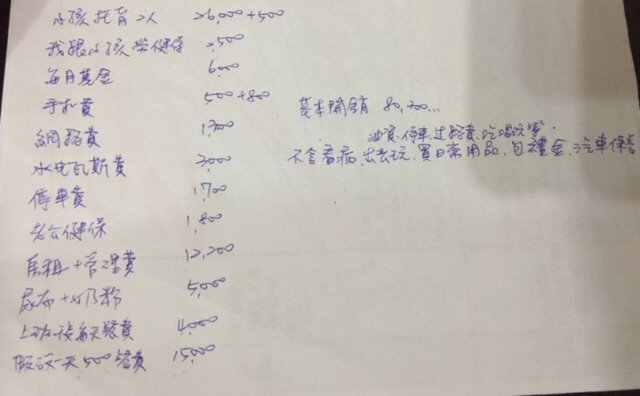 小孩托育2人 26,000+500
我跟小孩勞健保 2,500
每月基金 6,000
手機費 500+800 基本開銷 80,300...
網路費 1,300
油資、停車、过路費、吃喝玩樂、
水电瓦斯費 3,000 不含看病、出去玩、買日常用品、包禮金、汽車保養
停車費 1,700
老公健保 1,800
房租+管理費 12,200
尿布+奶粉 5,000
上班後每天餐費 4,000
假設一天500餐費 15,000